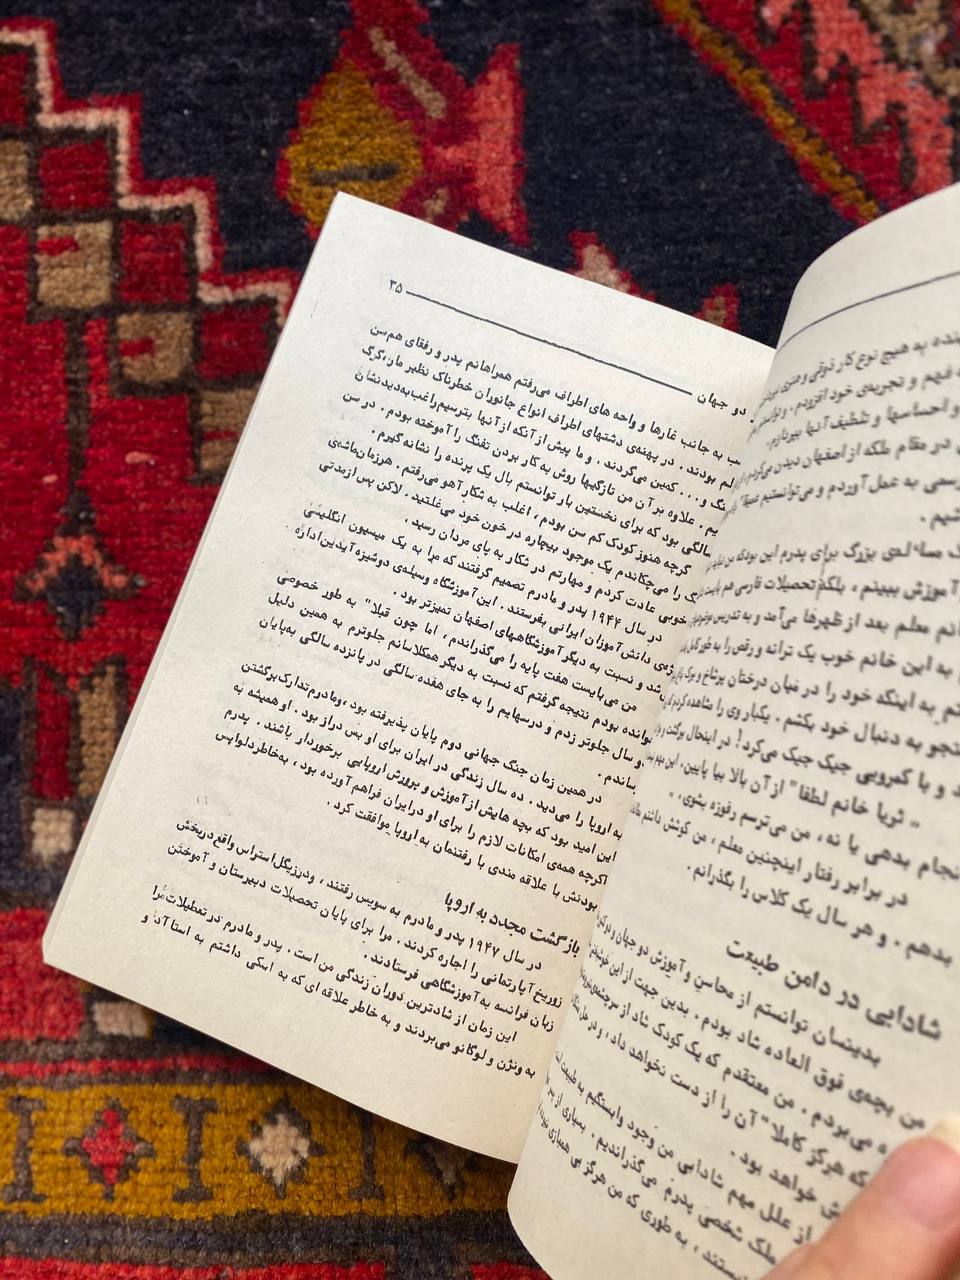 به هیچ نوع کار ذوقی و هنری
فهم و تجربه‌ی خود افزودم . و توانستم
و احساسها و تلطیف آنها بپردازم .
در مقام ملکه از اصفهان دیدن می‌کردم
رسمی به عمل آوردم و می‌توانستیم
شیم .
مسا‌له‌ی بزرگ برای پدرم این بود که من
آموزش ببینم ، بلکه تحصیلات فارسی هم
معلم بعد از ظهرها می‌آمد و به تدریس
به این خانم خوب یک ترانه و رقص را به طور کامل
به اینکه خود را در میان درختان پرشاخ و برگ
جستجو به دنبال خود بکشم . یکبار وی را مشاهده کردم که
و با کمرویی جیک جیک می‌کرد! در اینحال برگشت و
" ثریا خانم لطفا" از آن بالا بیا پایین.
انجام بدهی یا نه، من می‌ترسم رفوزه بشوی. "
در برابر رفتار اینچنین معلم ، من کوشش داشتم
بدهم . و هر سال یک کلاس را بگذرانم.
شادابی در دامن طبیعت
بدینسان توانستم از محاسن و آموزش دو جهان
من بچه‌ی فوق العاده شاد بودم . بدین جهت از این
می‌بردم . من معتقدم که یک کودک شاد از سرچشمه‌ی
که هرگز کاملا" آن را از دست نخواهد داد ، و در
خواهد بود .
از علل مهم شادابی من وجود وابستگیم به طبیعت
ملک شخصی پدرم می‌گذراندیم . بسیاری از
به طوری که من هرگز بی همبازی
دو جهان ۳۵
به جانب غارها و واحه های اطراف می‌رفتم همراهانم پدر و رفقای هم‌سن
بودند . در پهنه‌ی دشتهای اطراف انواع جانوران خطرناک نظیر مار، گرگ
و ... کمین می‌گردند . و ما پیش از آنکه از آنها بترسیم راغب به دیدنشان
علاوه بر آن من تازگیها روش به کار بردن تفنگ را آموخته بودم . در سن
سالگی بود که برای نخستین بار توانستم بال یک پرنده را نشانه گیرم .
گرچه هنوز کودک کم سن بودم ، اغلب به شکار آهو می‌رفتم . هر زمان ماشه‌ی
را می‌چکاندم یک موجود بیچاره در خون خود می‌غلتید . لاکن پس از مدتی
خوبی عادت کردم و مهارتم در شکار به پای مردان رسید .
در سال ۱۹۴۴ پدر و مادرم تصمیم گرفتند که مرا به یک میسیون انگلیسی
دانش آموزان ایرانی بفرستند . این آموزشگاه وسیله‌ی دوشیزه آیدین اداره
و نسبت به دیگر آموزشگاههای اصفهان تمیزتر بود .
من می‌بایست هفت پایه را می‌گذراندم ، اما چون قبلا" به طور خصوصی
خوانده بودم نتیجه گرفتم که نسبت به دیگر همکلاسانم جلوترم به همین دلیل
دو سال جلوتر زدم و درسهایم را به جای هفده سالگی در پانزده سالگی به پایان
رساندم .
در همین زمان جنگ جهانی دوم پایان پذیرفته بود ، و مادرم تدارک برگشتن
به اروپا را می‌دید . ده سال زندگی در ایران برای او بس دراز بود . او همیشه به
این امید بود که بچه هایش از آموزش و پرورش اروپایی برخوردار باشند . پدرم
اگرچه همه‌ی امکانات لازم را برای او در ایران فراهم آورده بود ، به خاطر دلواپس
بودنش با علاقه مندی با رفتنمان به اروپا موافقت کرد .
بازگشت مجدد به اروپا
در سال ۱۹۴۷ پدر و مادرم به سویس رفتند ، و در زیگل استراس واقع در بخش
زوریخ آپارتمانی را اجاره کردند . مرا برای پایان تحصیلات دبیرستان و آموختن
زبان فرانسه به آموزشگاهی فرستادند .
این زمان از شادترین دوران زندگی من است . پدر و مادرم در تعطیلات مرا
به ونژن و لوگانو می‌بردند و به خاطر علاقه ای که به اسکی داشتم به